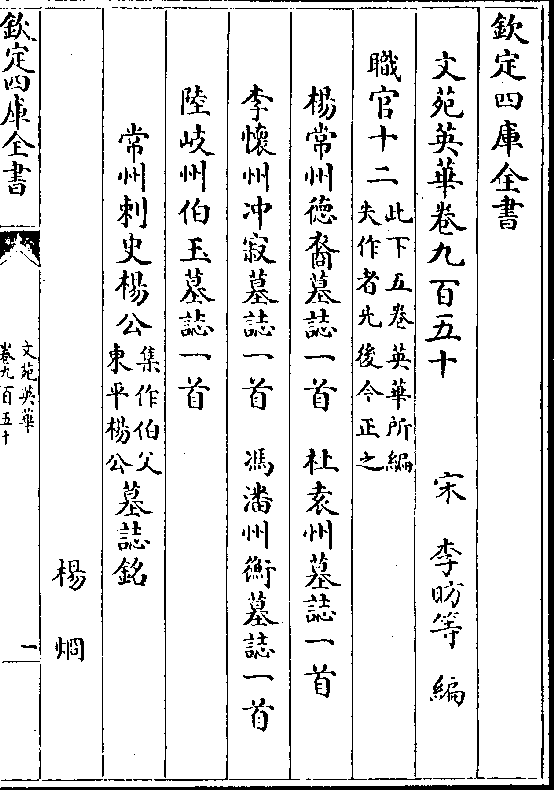 欽定四庫全書
文苑英華卷九百五十
宋 李昉等 編
職官十二此下五卷英華所編失作者先後今正之
楊常州德裔墓誌一首 杜袁州墓誌一首
李懷州冲寂墓誌一首 馮潘州衡墓誌一首
陸岐州伯玉墓誌一首
常州刺史楊公集作伯父東平楊公墓誌銘
楊烱
欽定四庫全書
文苑英華
卷九百五十
一